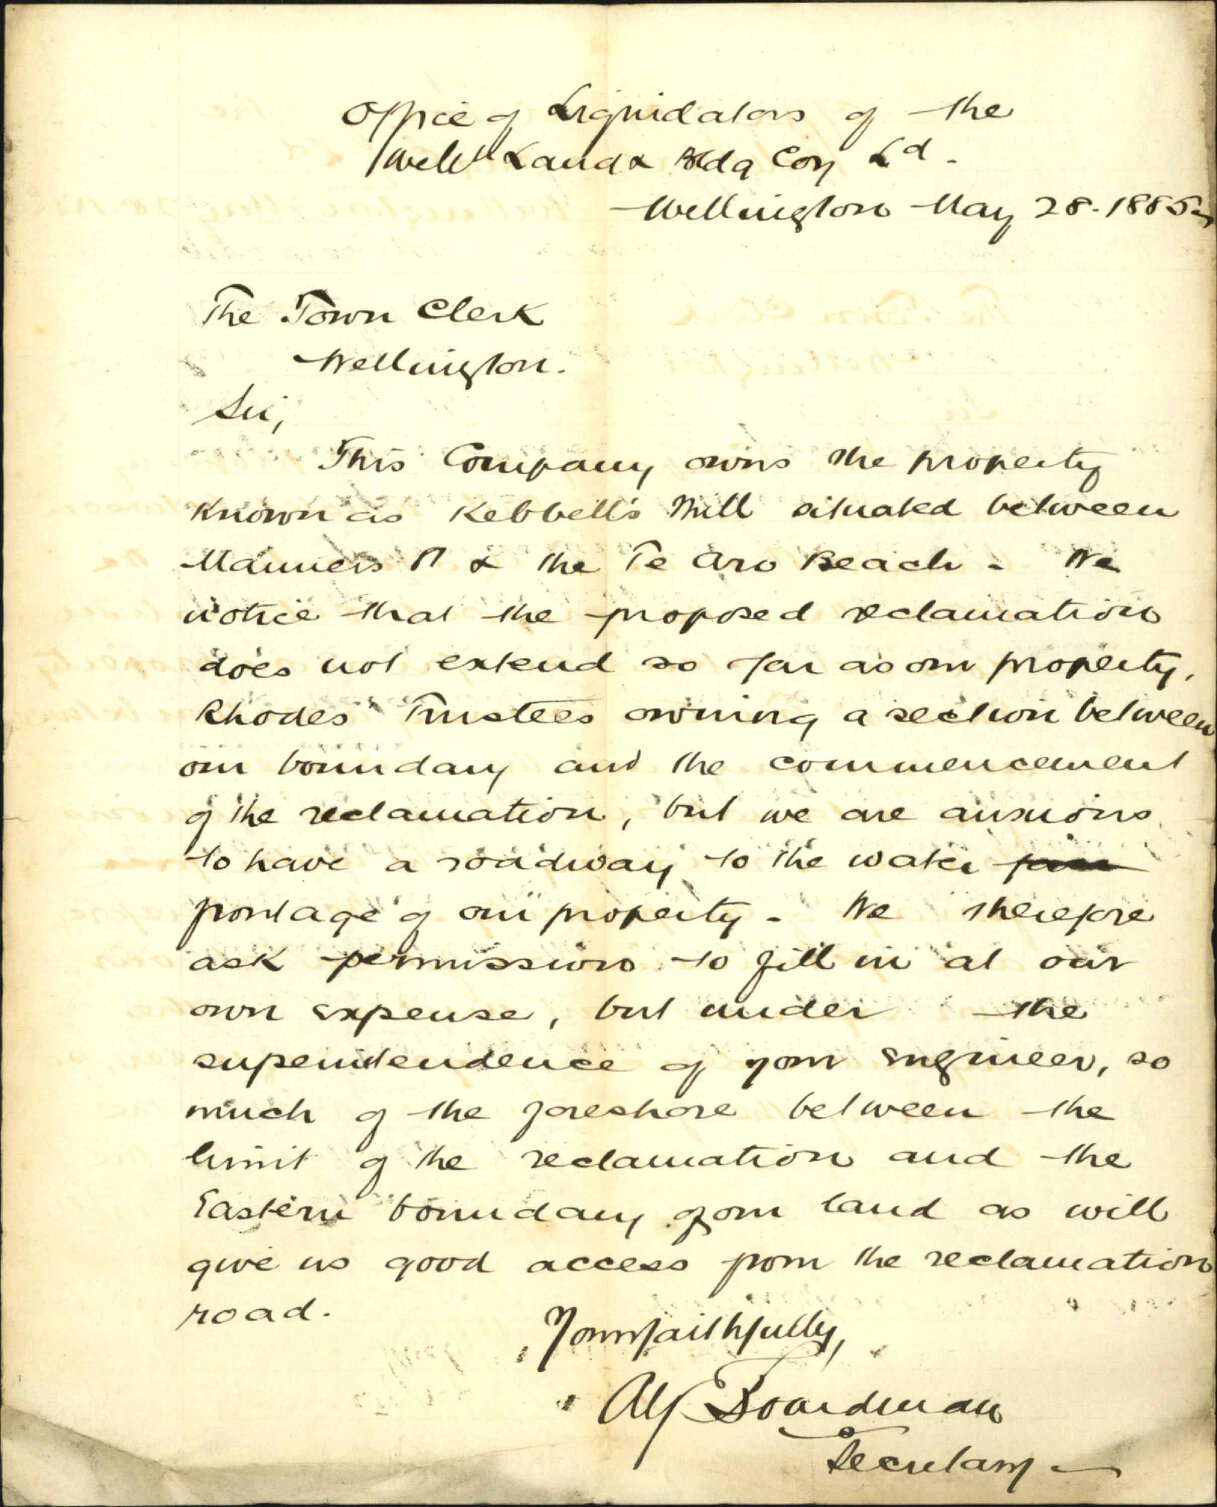 Office of Liquidators of the
Well Land & Bldg Coy Ld.
Wellington May 28. 1885
The Town Clerk
Wellington.
Sir,
This Company owns the property
known as Kebbell's Mill situated between
Manners St & the Te Aro Beach. We
notice that the proposed reclamation
does not extend so far as our property,
Rhodes Trustees owning a section between
our boundary and the commencement
of the reclamation, but we are anxious
to have a roadway to the water
frontage of our property. We therefore
ask permission to fill in at our
own expense, but under the
superintendence of your Engineer, so
much of the foreshore between the
limit of the reclamation and the
Eastern boundary of our land as will
give us good access from the reclamation
road.
Yours faithfully,
Alf Boardman
Secretary